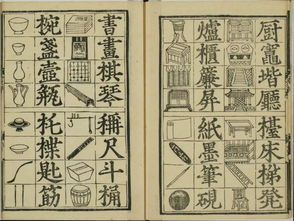 厨竈堦廳檯床梯凳
爐櫃簾屏紙墨筆硯
書畫棋琴稱尺斗桶
椀盞壺瓶托楪匙筋